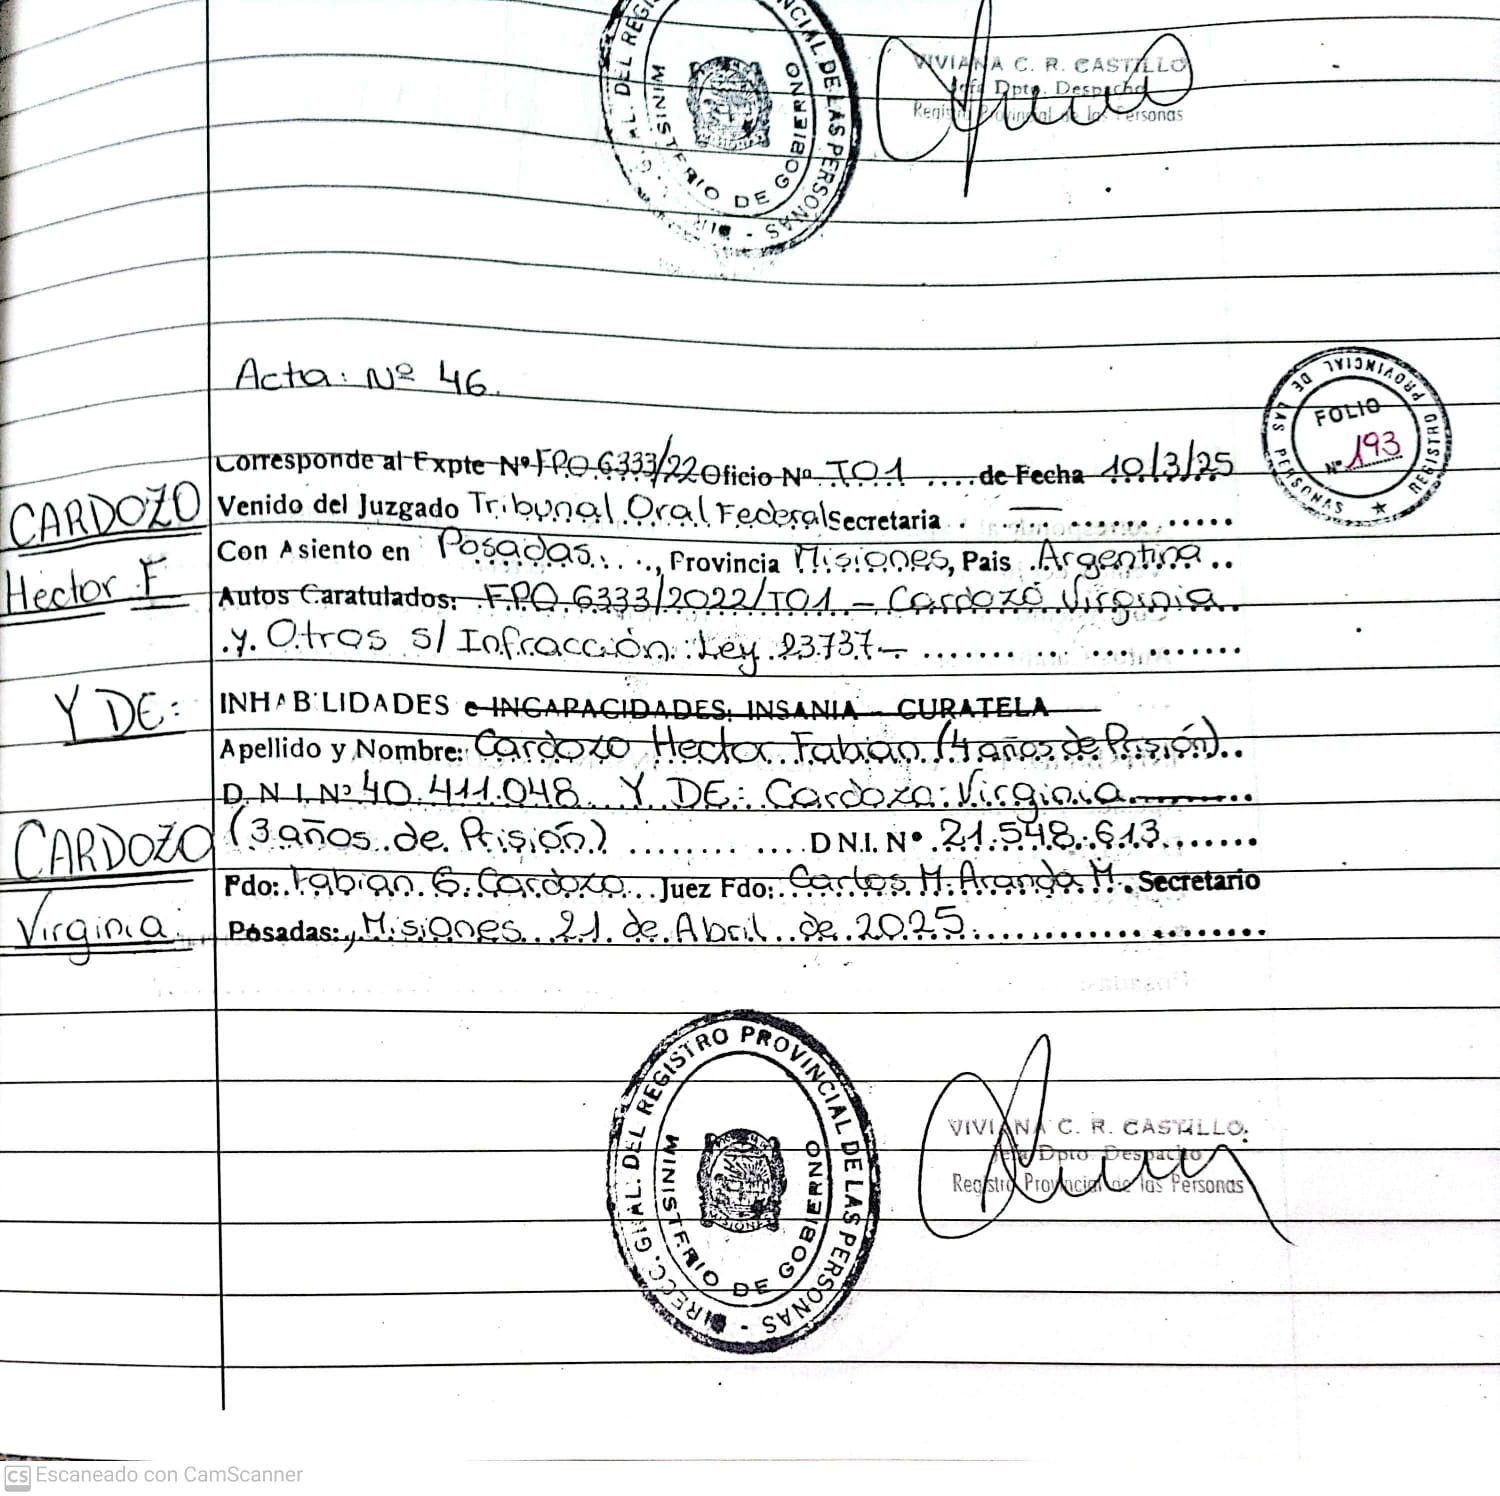 DIR. G. GRAL. DEL REGISTRO PROVINCIAL DE LAS PERSONAS
MINISTERIO DE GOBIERNO
VIVIANA C. R. CASTILLO
Jefa Dpto. Despacho
Registro Provincial de las Personas
Acta: Nº 46.
REGISTRO PROVINCIAL DE LAS PERSONAS
FOLIO
Nº 193
Corresponde al Expte Nº FPO 6333/22 Oficio Nº TO1 .... de Fecha 10/3/25
CARDOZO
Venido del Juzgado Tribunal Oral Federal Secretaria . — ...........
Con Asiento en Posadas..., Provincia Misiones, Pais Argentina..
Hector F
Autos Caratulados: FPO 6333/2022/TO1 - Cardozo Virginia.
.y. Otros s/ Infracción Ley 23.737- .......................
Y DE:
INHABILIDADES e INCAPACIDADES; INSANIA - CURATELA
Apellido y Nombre: Cardozo Hector Fabian (4 años de Prisión)..
D.N.I. Nº 40.411.048 Y DE: Cardozo Virginia
CARDOZO
(3 años de Prisión) ............ D N.I. Nº 21.548.613.......
Fdo: Fabian G. Cardozo... Juez Fdo: Carlos M. Aranda M. Secretario
Virginia
Posadas:, Misiones 21 de Abril de 2025....................
DIRECC. GRAL. DEL REGISTRO PROVINCIAL DE LAS PERSONAS
MINISTERIO DE GOBIERNO
MISIONES
VIVIANA C. R. CASTILLO
Jefa Dpto. Despacho
Registro Provincial de las Personas
CS Escaneado con CamScanner